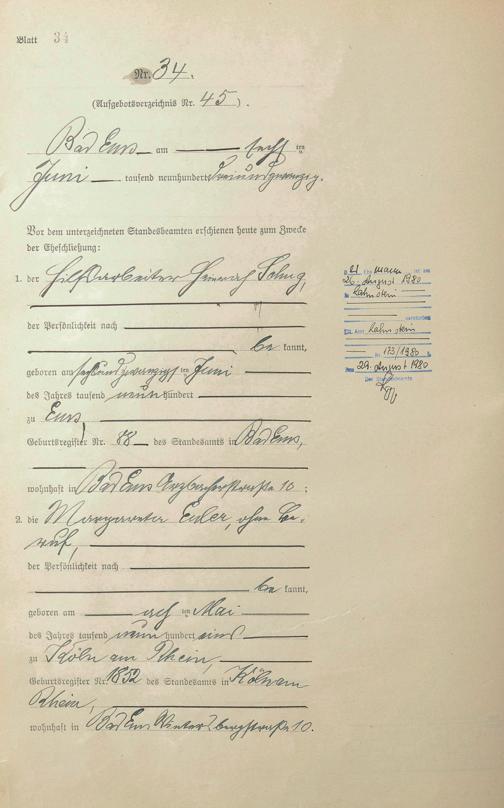 Blatt 34
Nr. 34.
(Aufgebotsverzeichnis Nr. 45).
Bad Ems am sechs ten
Juni tausend neunhundert dreiundzwanzig.
Vor dem unterzeichneten Standesbeamten erschienen heute zum Zwecke
der Eheschließung:
1. der Hilfsarbeiter Heinrich
der Persönlichkeit nach
be kannt,
geboren am sechsundzwanzigs ten Juni
des Jahres tausend neun hundert
zu Ems,
Geburtsregister Nr. 88 des Standesamts in Bad Ems,
wohnhaft in Bad Ems Arzbacherstraße 10;
2. die Margareta Euler, ohne Be-
ruf,
der Persönlichkeit nach
be kannt,
geboren am ach ten Mai
des Jahres tausend neun hundert eins
zu Köln am Rhein,
Geburtsregister Nr. 1852 des Standesamts in Köln am
Rhein,
wohnhaft in Bad Ems Wintersbergstraße 10.
26. August 1980
in Lahnstein
verstorben
Lahnstein
Nr. 173/1980
29. August 1980
Der Standesbeamte